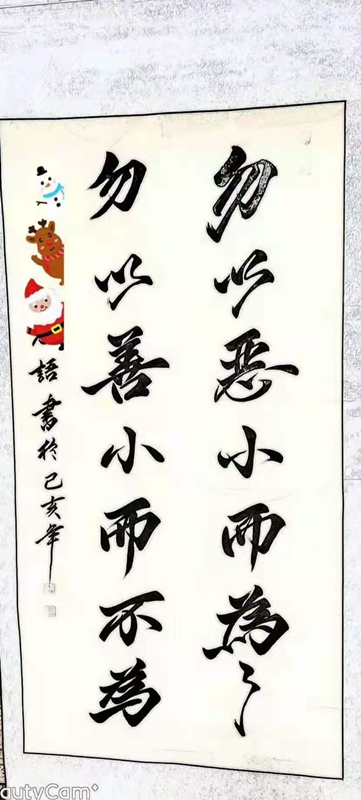 勿以恶小而為之
勿以善小而不為
語書於己亥年
autyCam